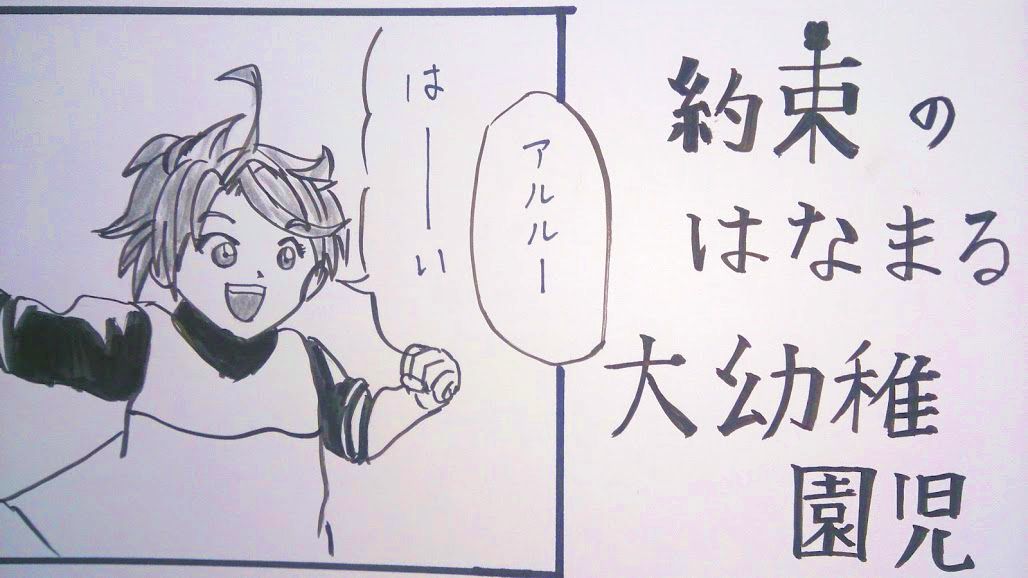 約束の
はなまる
大幼稚
園児
アルルー
はーーい